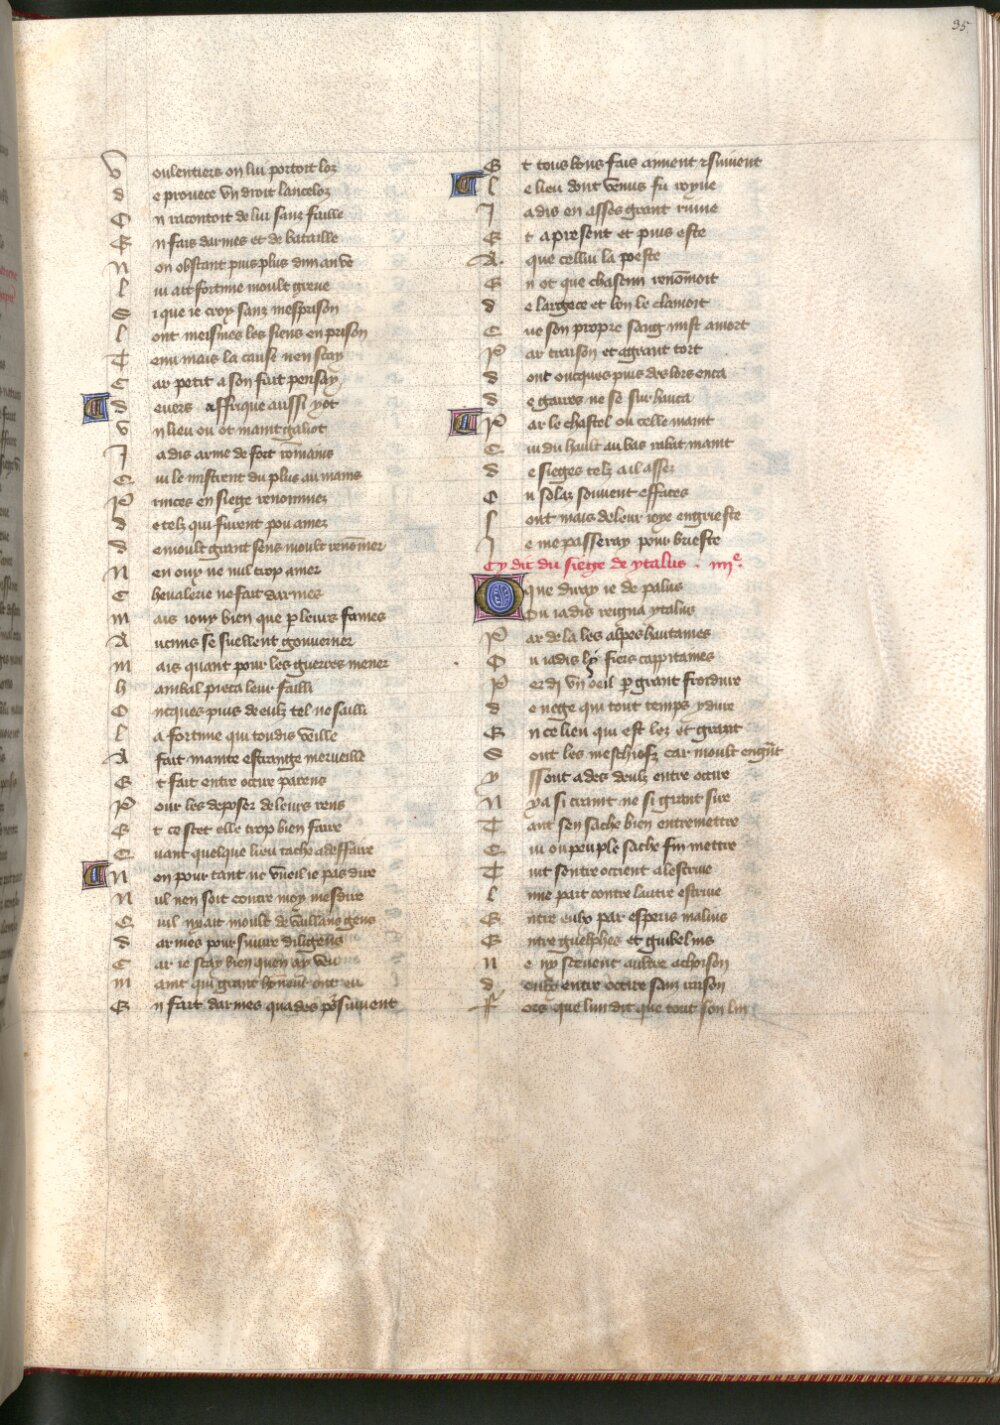 35
Voulentiers on lui portoit loz
de prouece vn droit lanceloz
On racontoit de lui sanz faille
En fais darmes et de bataille
Non obstant puis plus dun an ve
lui ait fortune moult greue
Si que ie croy sanz mesprison
lont meismes les siens en prison
Tenu mais la cause nen scay
Car petit a son fait pensay
deuers affrique aussi yot
Vn lieu ou ot maint galiot
Jadis arme de fort rommains
Qui le mistrent du plus au mains
Princes en siege renommez
de telz qui furent pou amez
de moult grant sens moult renommer
Nen ouy ne nul trop amer
Cheualerie ne fait darmes
mais iouy bien que p leurs fames
Aucuns se suellent gouuerner
mais quant pour les guerres mener
hanibal pieca leur failli
Oncques puis de eulz tel ne sailli
la fortune qui toudis veille
A fait mainte estrange merueille
Et fait entre occire parens
Pour les deposer de leurs rens
Et ce scet elle trop bien faire
Quant quelque lieu tache a deffaire
Non pour tant ne vueil ie pas dire
Nul nen soit contre moy mesdire
Quil nyait moult de vaillans gens
darmes poursuiuir diligens
Car ie scay bien quen ay veu
maint qui grant honneur ont eu
En fait darmes quades poursuiuent
Et tous bons fais aiment et suiuent
le lieu dont venus fu royne
Jadis en asses grant ruine
Et apresent et puis este
A que cellui la poeste
En ot que chascun renommoit
de largece et bon le clamoit
Que son propre sang mist amort
Par traison et agrant tort
dont oncques puis des lors enca
de gaires ne se surhauca
Par le chastel ou celle maint
Qui du hault au bas rabat maint
de sieges telz a il assez
En solaz souuent effacies
sont mais de leur ioye engrieste
Je me passeray pour briefte
Cy dit du siege de ytalus . iiiie.
Que diray ie de palus
Ou iadis reigna ytalus
Par de la les alpes hautaines
Ou iadis ly fiers cappitaines
Perdi vn oeil p grant froidure
de nege qui tout temps y dure
En ce lieu qui est loz et grant
Sont les meschiefz car moult engrant
y ssont ades deulz entre occire
Nya si craint ne si grant sire
Tant sen sache bien entremettre
Qui ou peuple sache fin mettre
Tuit sentre occient a lestriue
lune part contre lautre estriue
Entre eulx par esperis malins
Entre guelphes et guibelins
Ne ny sceuent aultre achoison
deulz entre occire sanz raison
Fors que lun dit que tout son lin